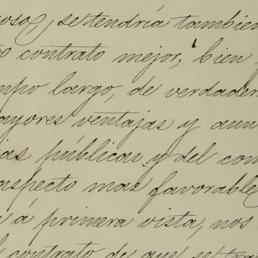 osos, se tendría tambien
contrato mejor, bien
mpo largo, de verdader
ayores ventajas y aun
ias públicas y del com
aspecto mas favorable
á primera vista, nos
contrato de que